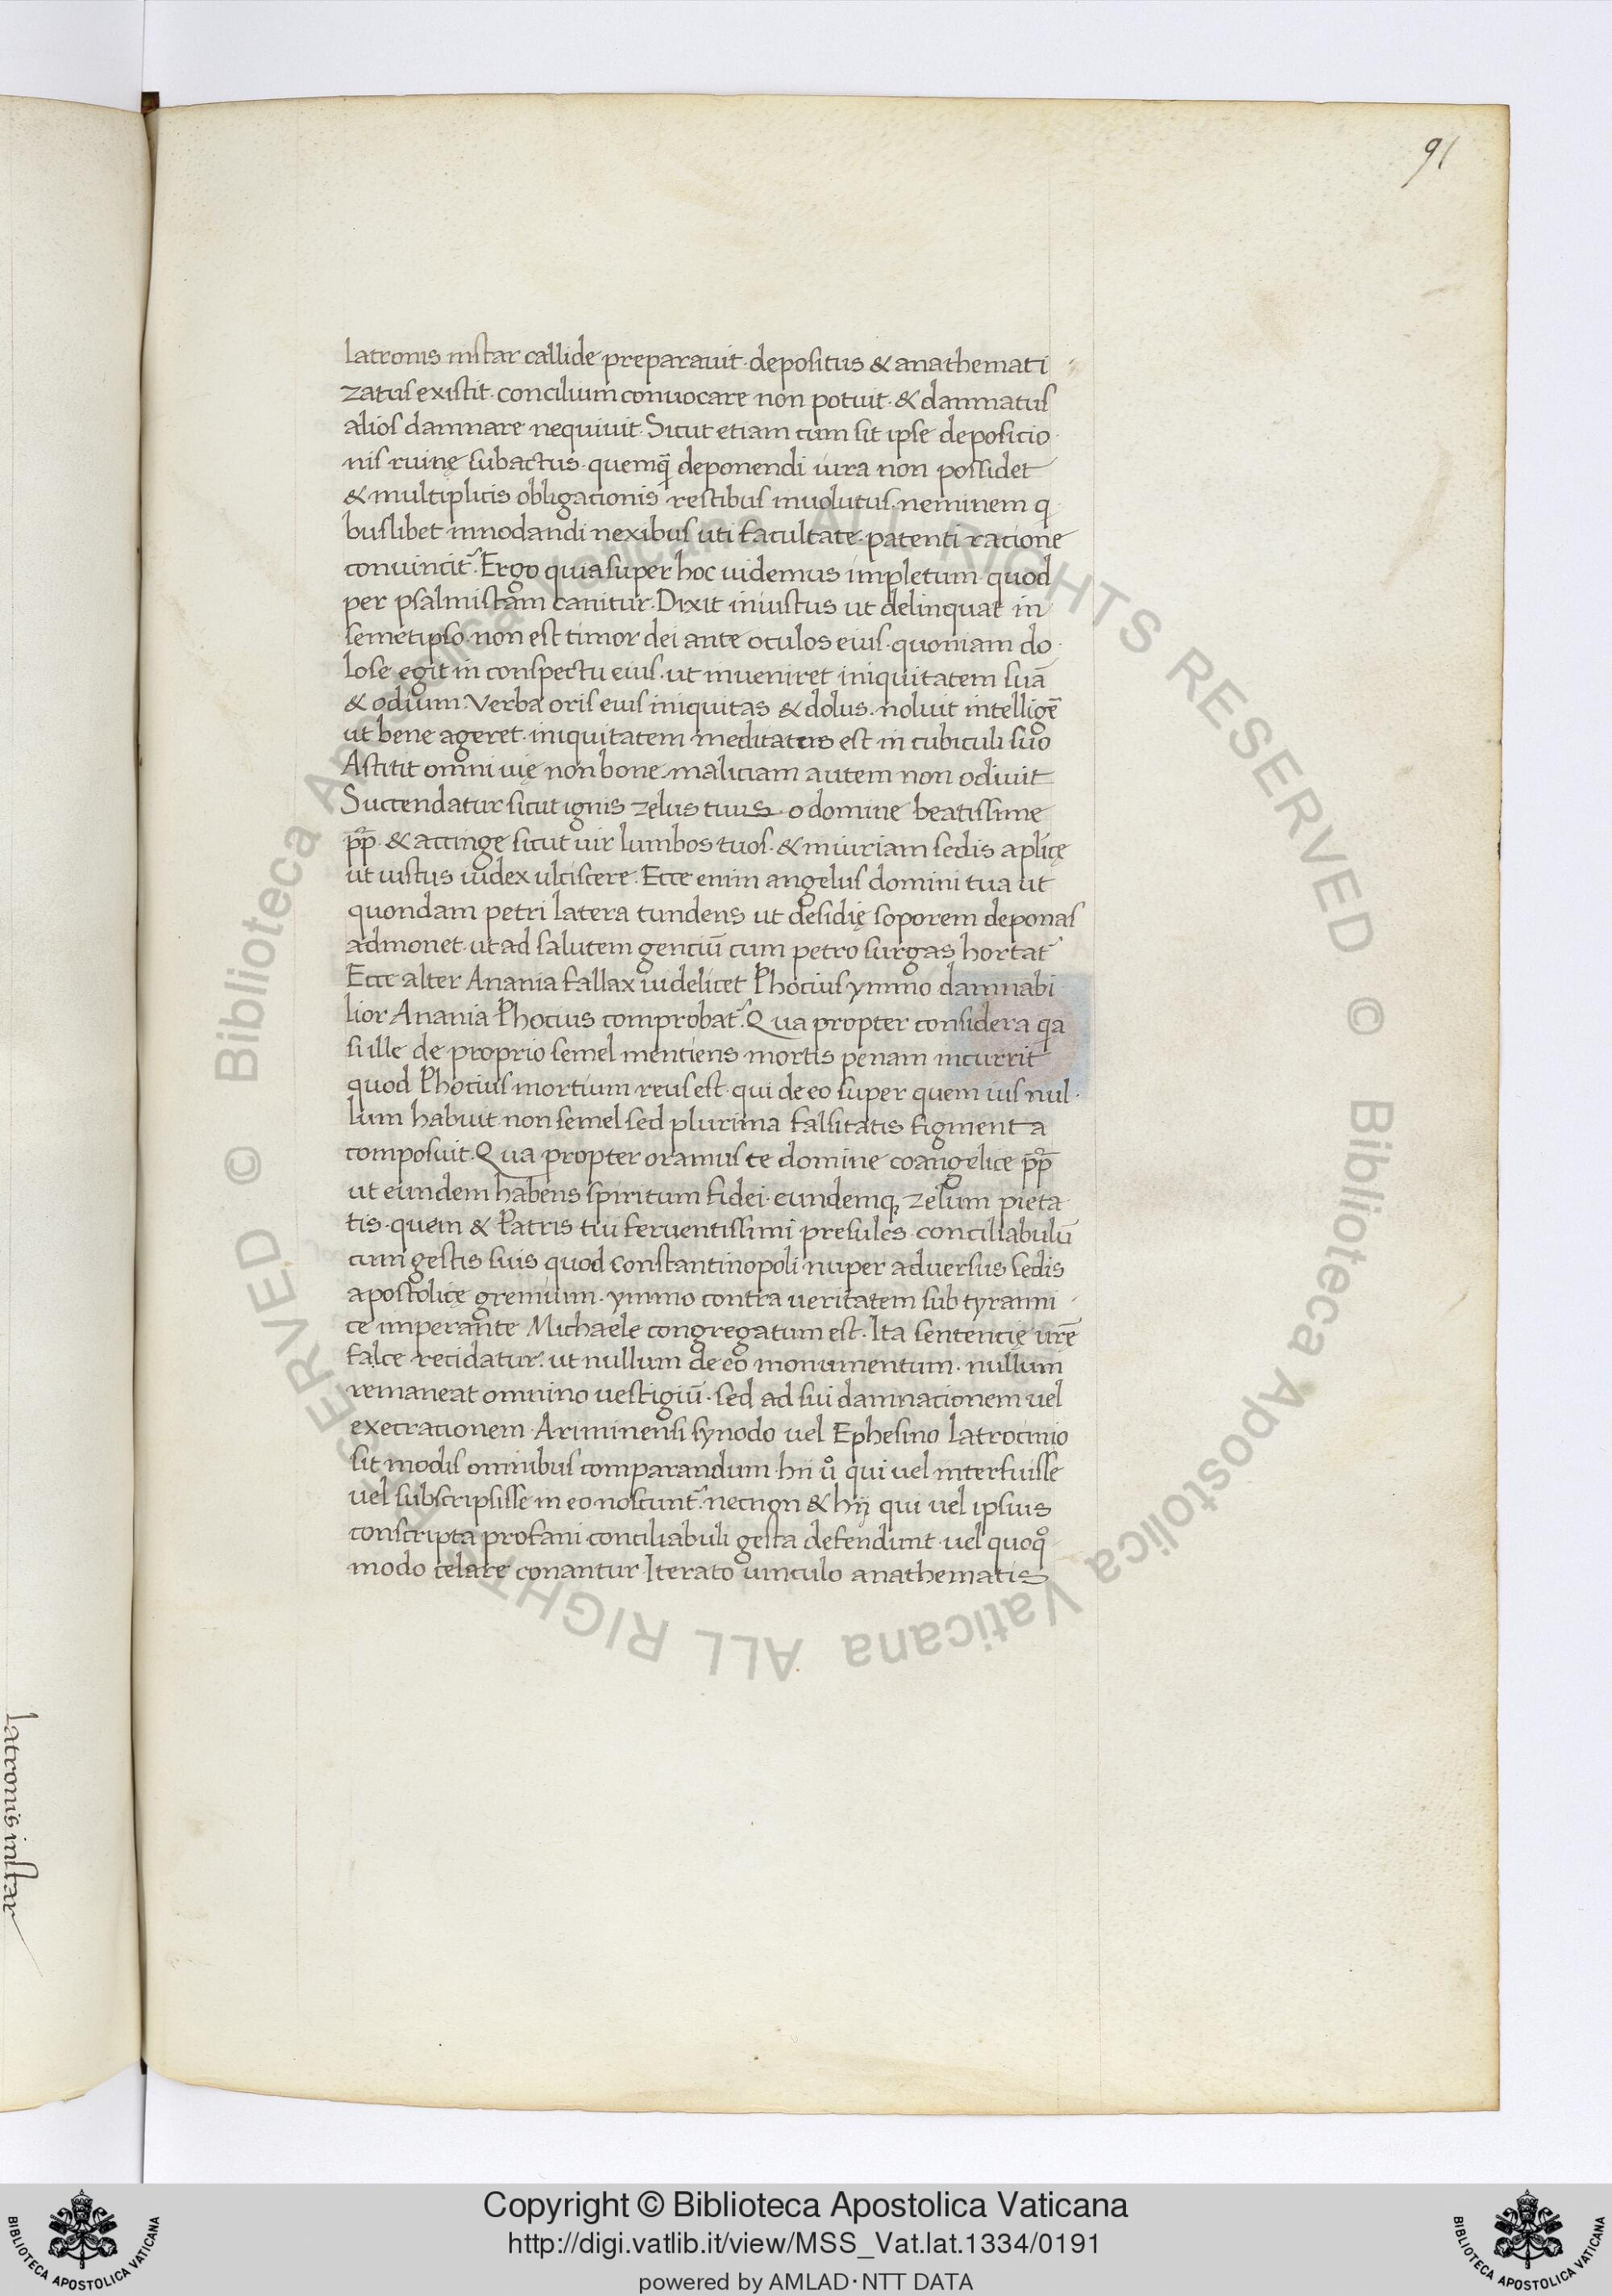 91
latronis instar callide preparauit. depositus & anathemati
zatus existit. concilium conuocare non potuit. & damnatus
alios damnare nequiuit. Sicut etiam cum sit ipse deposicio
nis ruinę subactus. quemq̄ deponendi iura non possidet
& multiplicis obligationis restibus inuolutus. neminem q
buslibet innodandi nexibus uti facultate. patenti ratione
conuincit᷑. Ergo quia super hoc uidemus impletum quod
per psalmistam canitur. Dixit iniustus ut delinquat in
semetipso. non est timor dei ante oculos eius. quoniam do
lose egit in conspectu eius. ut inueniret iniquitatem suā
& odium. Verba oris eius iniquitas & dolus. noluit intelligē
ut bene ageret. iniquitatem meditatus est in cubiculi suo
Astitit omni uię non bone. maliciam autem non odiuit
Succendatur sicut ignis zelus tuus. o domine beatissime
p̄p̄. & accinge sicut uir lumbos tuos. & iniuriam sedis aplicę
ut iustus iudex ulciscere. Ecce enim angelus domini tua ut
quondam petri latera tundens ut desidię soporem deponas
admonet. ut ad salutem genciū cum petro surgas hortat᷑
Ecce alter Anania fallax uidelicet Phocius ymmo damnabi
lior Anania Phocius comprobat᷑. Qua propter considera qa
si ille de proprio semel mentiens mortis penam incurrit
quod Phocius mortium reus est. qui de eo super quem ius nul
lum habuit non semel sed plurima falsitatis figmenta
composuit. Qua propter oramus te domine coangelice p̄p̄
ut eundem habens spiritum fidei. eundemq; zelum pieta
tis. quem & Patris tui feruentissimi presules. conciliabulū
cum gestis suis quod constantinopoli nuper aduersus sedis
apostolicę gremium. ymmo contra ueritatem sub tyranni
ce imperante Michaele congregatum est. Ita sentencię urē
falce recidatur. ut nullum de eo monumentum. nullum
remaneat omnino uestigiū. sed ad sui damnacionem uel
execrationem Ariminensi synodo uel Ephesino latrocinio
sit modis omnibus comparandum. hii uͦ qui uel interfuisse
uel subscripsisse in eo noscunt᷑. necnon & hij qui uel ipsius
conscripta profani conciliabuli gesta defendunt. uel quoqͦ
modo celare conantur Iterato uinculo anathematis
latronis instar
© Biblioteca Apostolica Vaticana ALL RIGHTS RESERVED © Biblioteca Apostolica Vaticana ALL RIGHTS RESERVED
Copyright © Biblioteca Apostolica Vaticana
http://digi.vatlib.it/view/MSS_Vat.lat.1334/0191
powered by AMLAD·NTT DATA
BIBLIOTECA APOSTOLICA VATICANA
BIBLIOTECA APOSTOLICA VATICANA